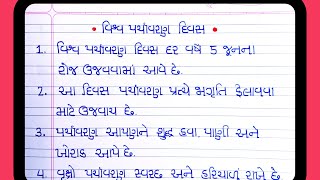 • વિશ્વ પર્યાવરણ દિવસ •
1. વિશ્વ પર્યાવરણ દિવસ દર વર્ષે 5 જૂનના
રોજ ઉજવવામાં આવે છે.
2. આ દિવસ પર્યાવરણ પ્રત્યે જાગૃતિ ફેલાવવા
માટે ઉજવાય છે.
3. પર્યાવરણ આપણને શુદ્ધ હવા, પાણી અને
ખોરાક આપે છે.
4. વૃક્ષો પર્યાવરણ સ્વચ્છ અને હરિયાળું રાખે છે.